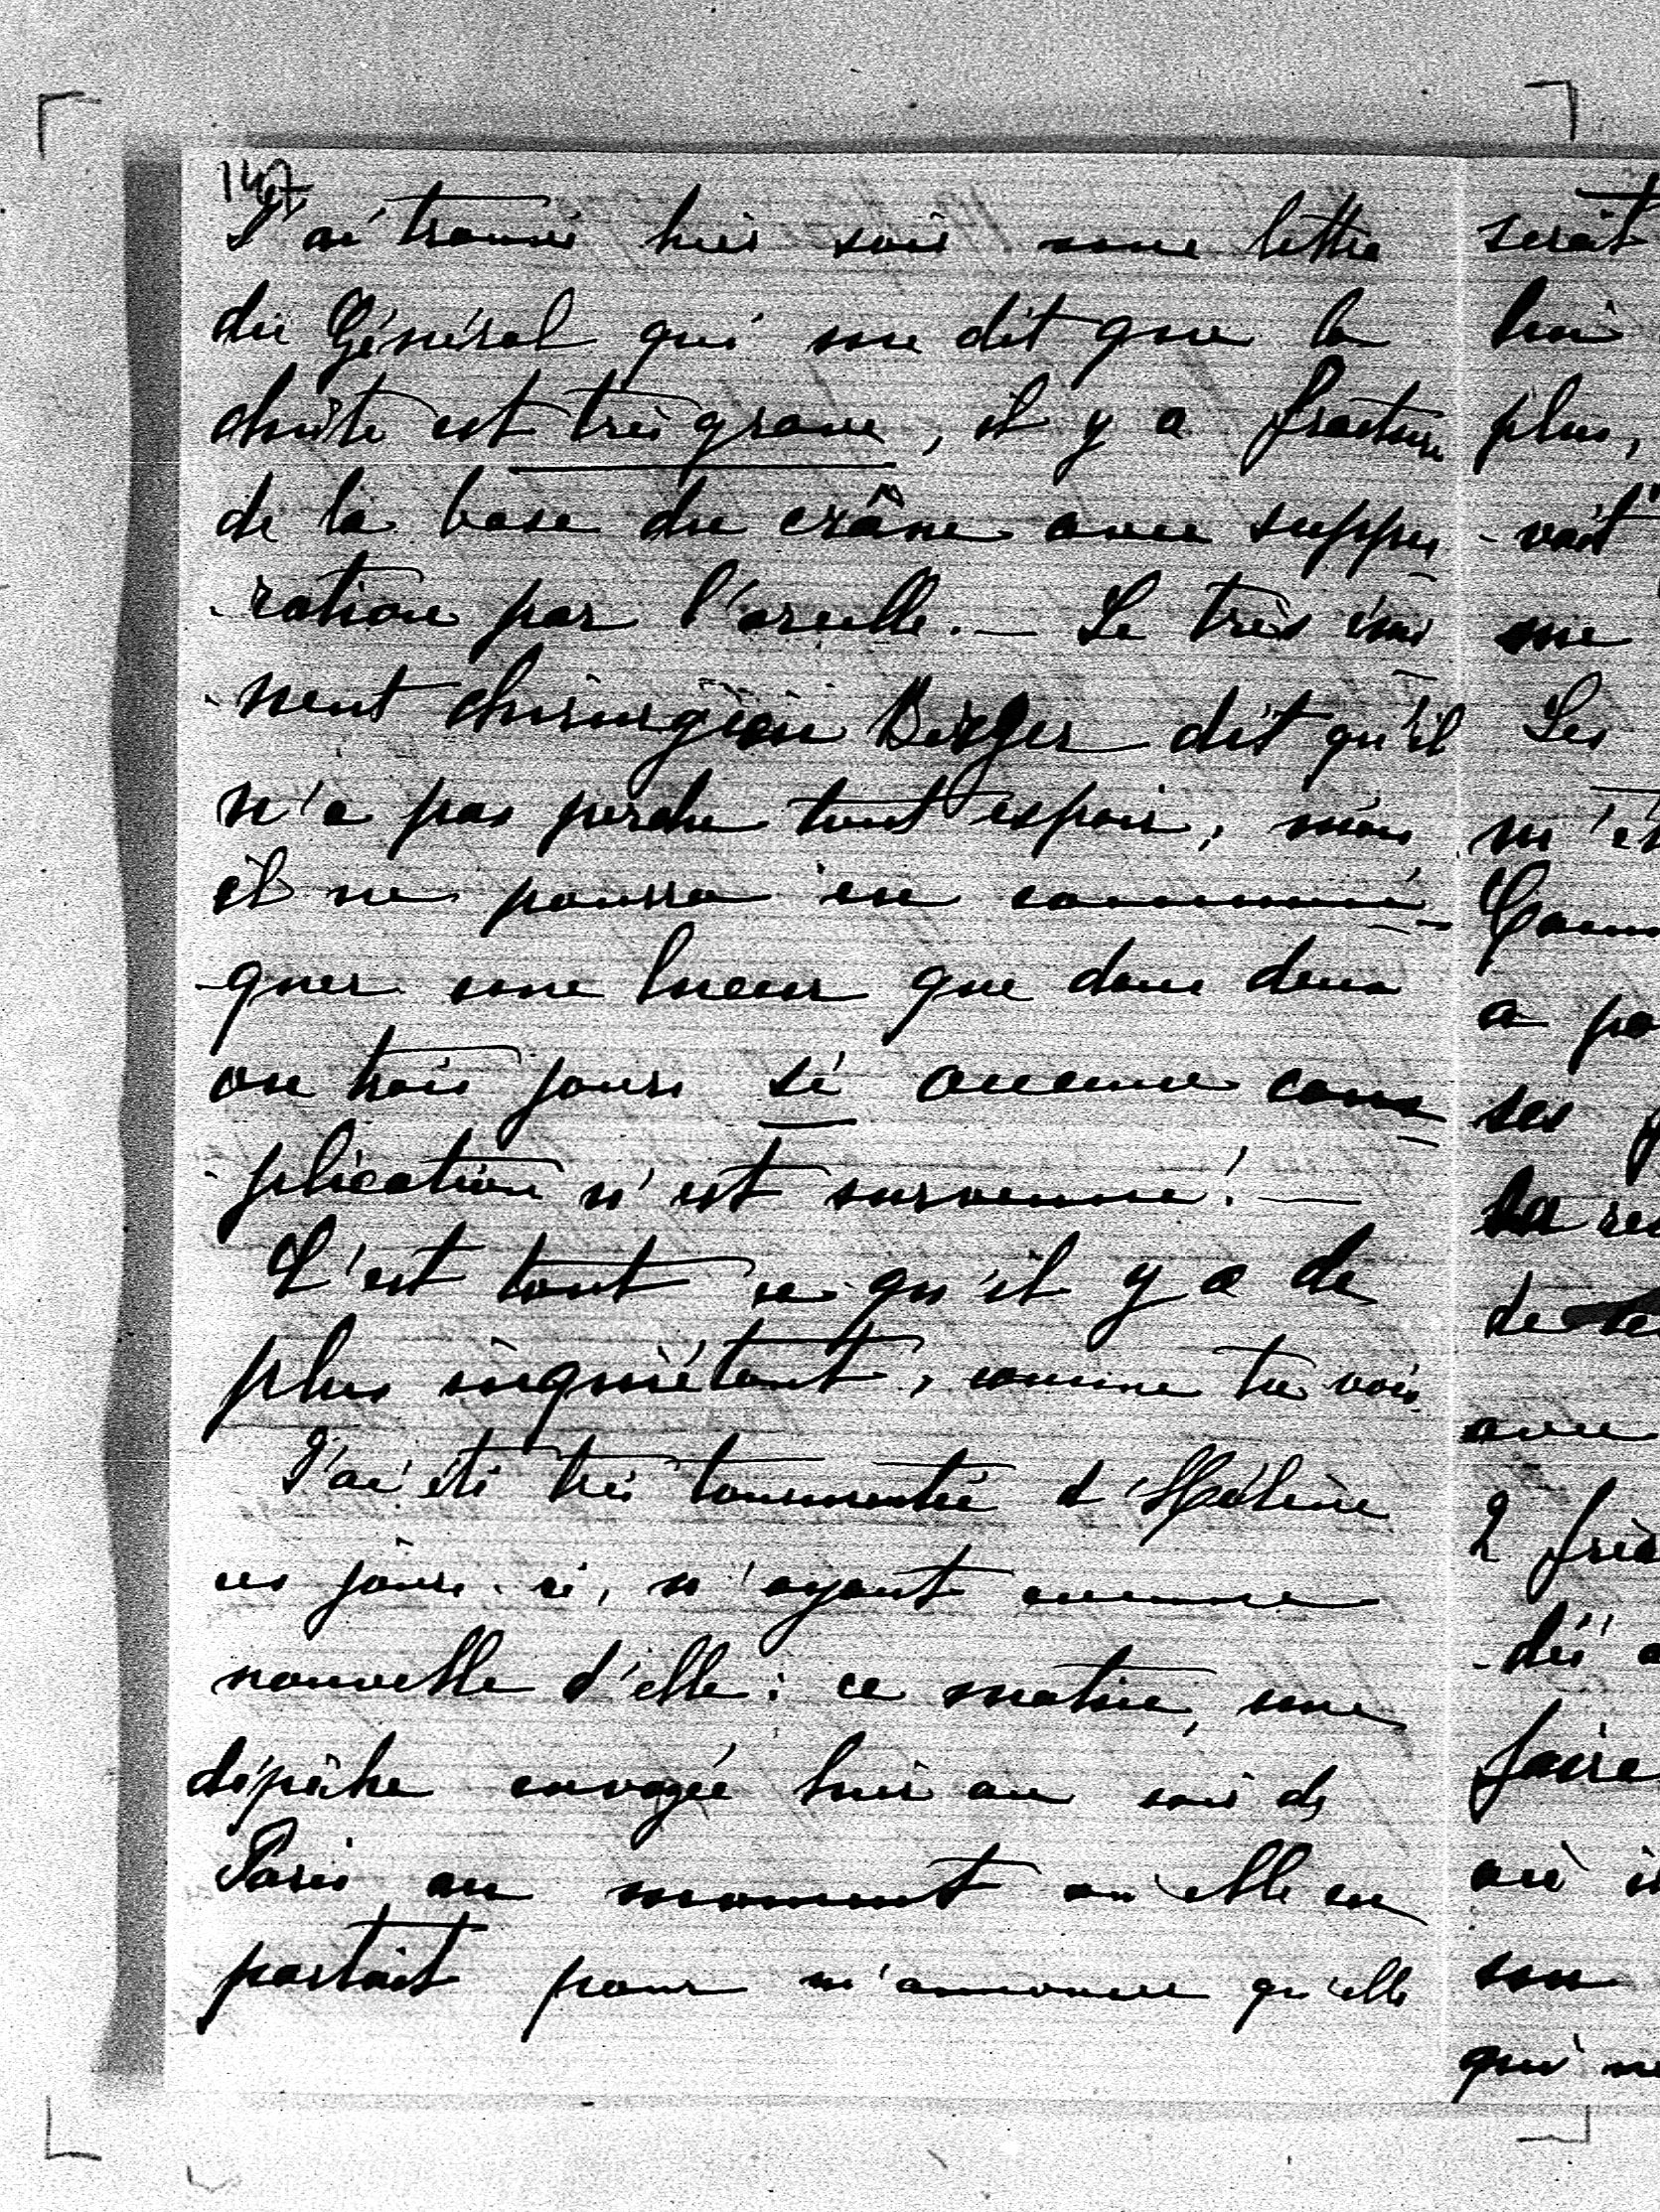 147
J'ai trouvé hier soir une lettre
du Général qui me dit que la
chute est très grave, il y a fracture
de la base du crâne avec suppu
-ration par l'oreille. — Le très émi
-nent chirurgien Berger dit qu'il
n'a pas perdu tout espoir, mais
il ne pourra en communi-
-quer une lueur que dans deux
ou trois jours si aucune com
-plication n'est survenue! —
C'est tout ce qu'il y a de
plus inquiétant, comme tu vois.
J'ai été très tourmentée d'Hélène
ces jours-ci, n'ayant aucune
nouvelle d'elle : ce matin, une
dépêche envoyée hier au soir de
Paris au moment où elle en
partait pour m'annoncer qu'elle
serait
plus,
-vait
me
Les
a
ses
la
de
avec
2
faire
où
son
qui